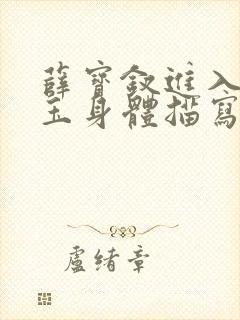 薛寶釵進入
玉身體描寫
盧緒章